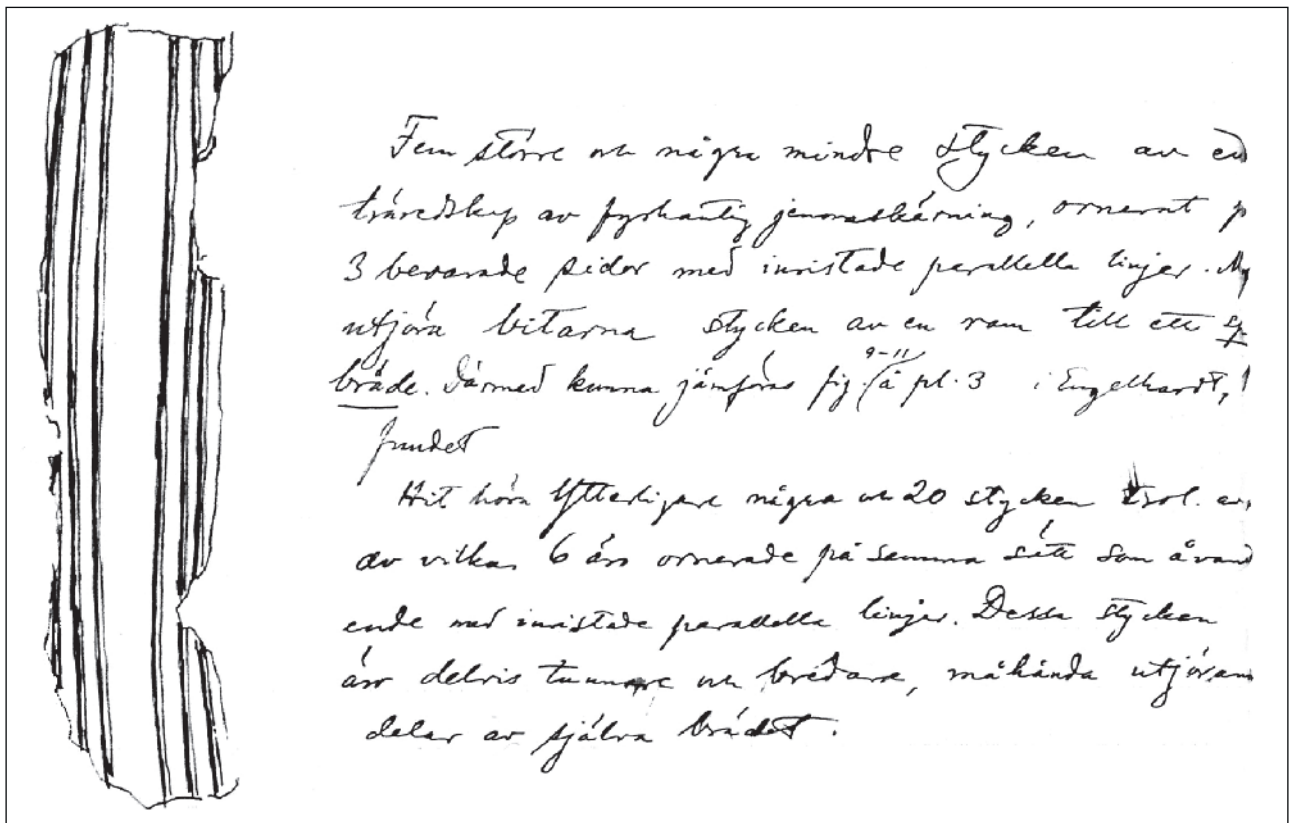 Fem större och några mindre stycken av en
träredskap av fyrkantig jenomskärning, ornerat p
3 bevarade sidor med inristade parallella linjer. My
utjöra bitarna stycken av en ram till ett sp
bräde. Därmed kunna jämföras fig. 9-11 å pl. 3 i Engelhardt,
fundet
Hit höra Ytterligare några och 20 stycken
av vilka 6 äro ornerade på samma sätt som åvand
ende med inristade parallella linjer. Dessa stycken
äro delvis tunnare och bredare, måhända utjöran
delar av själva brädet.